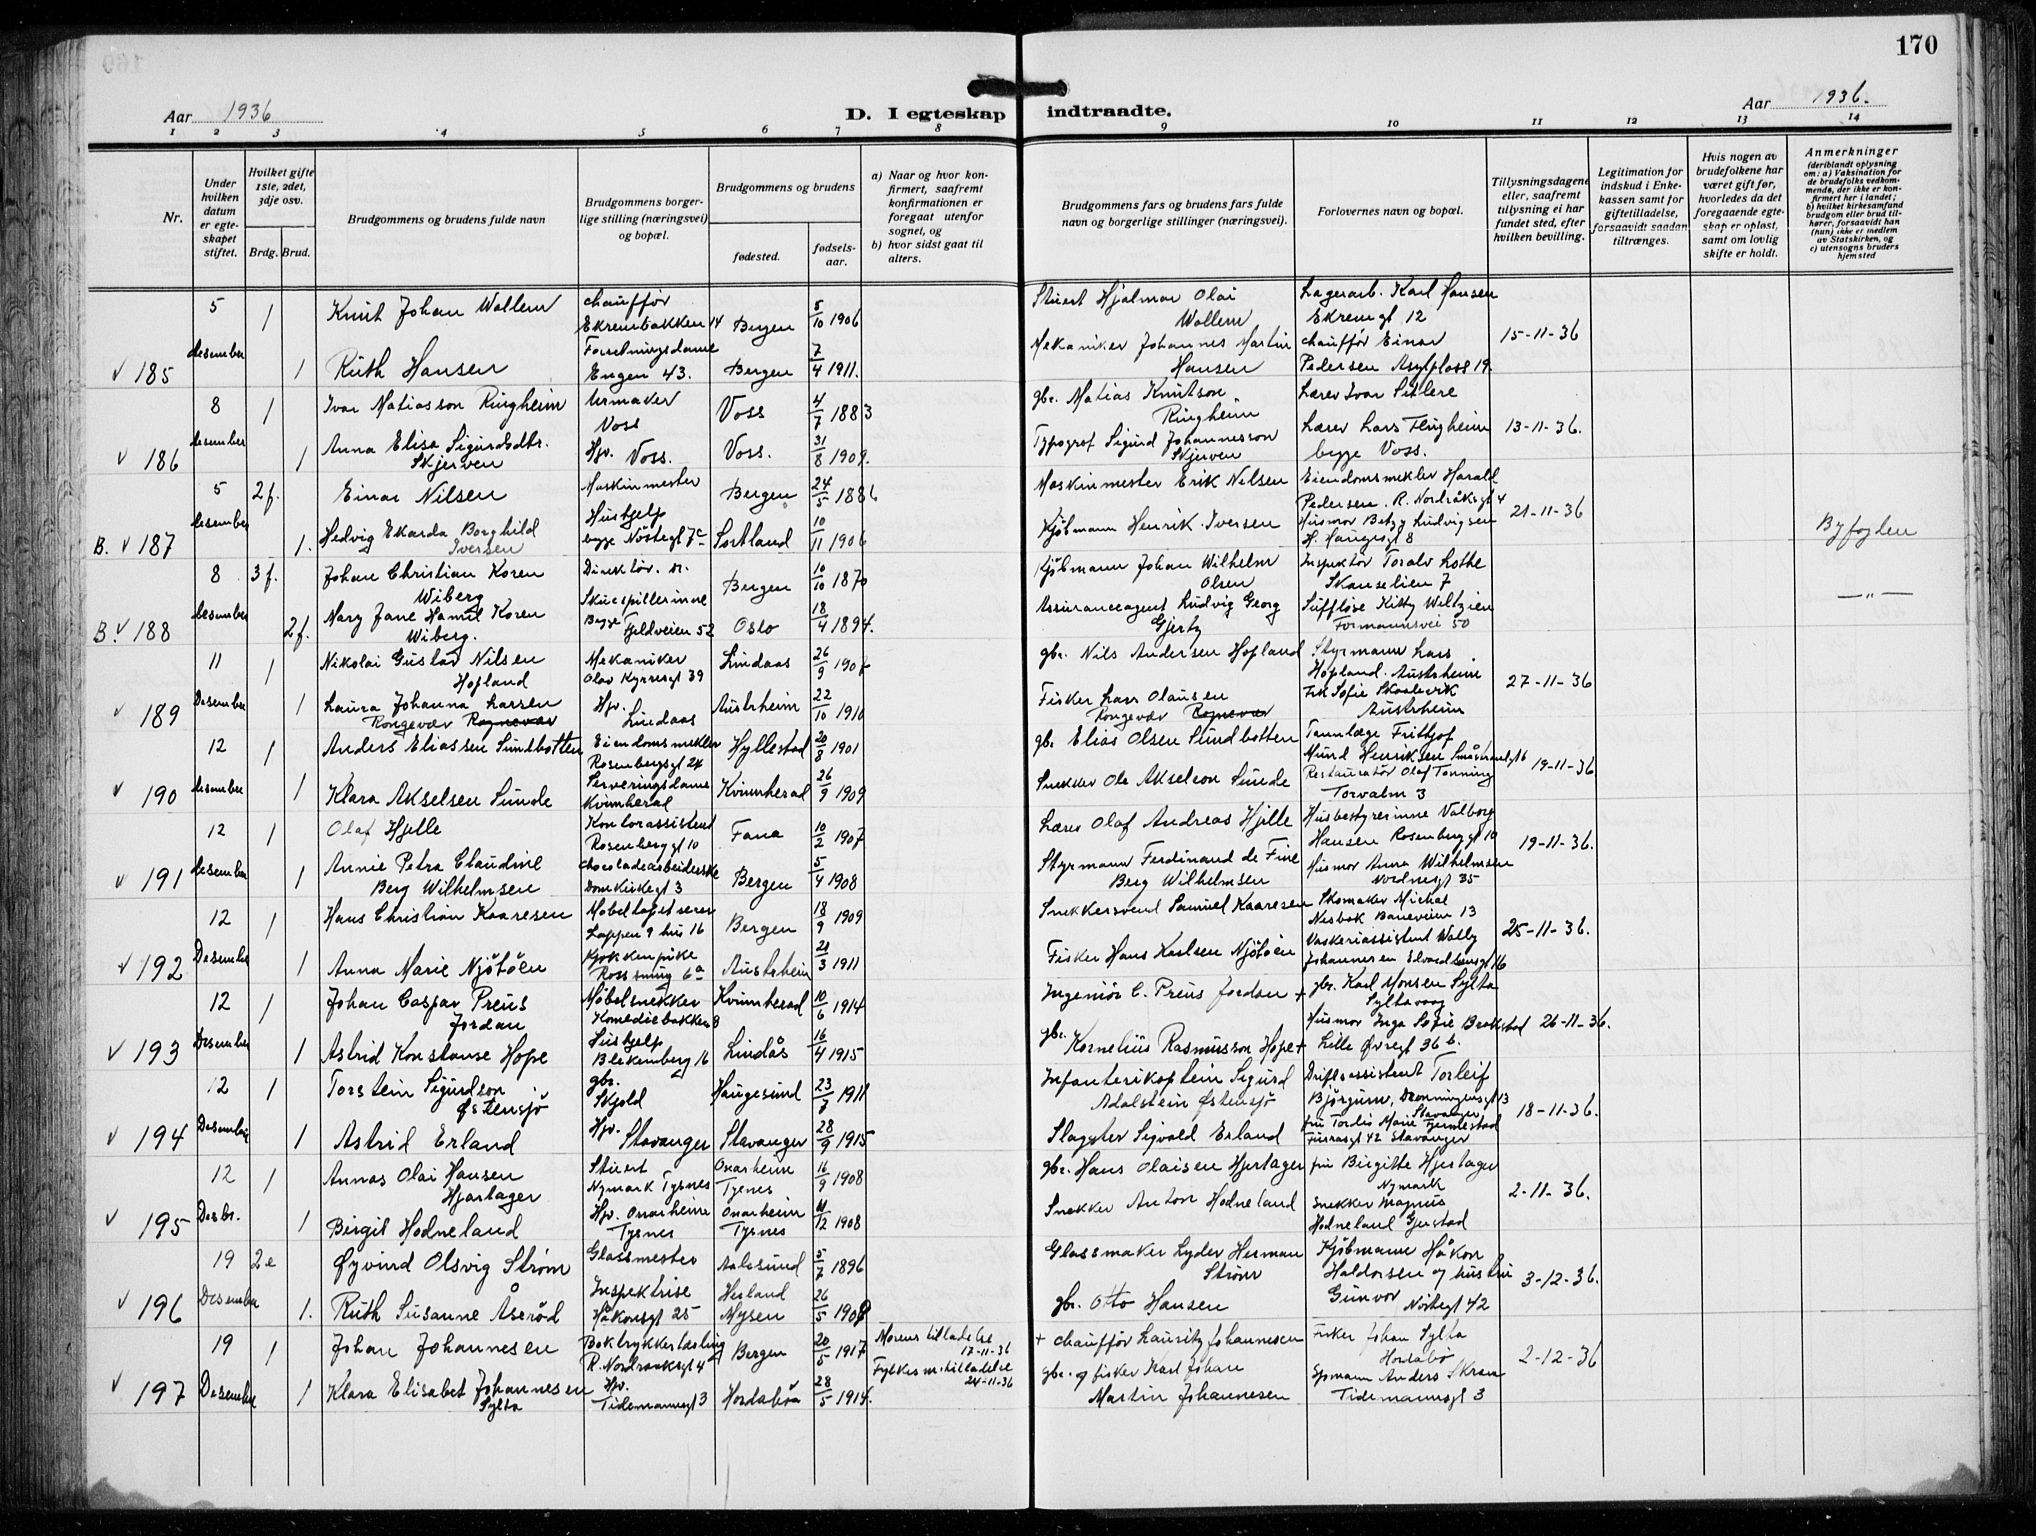 170
Aar 1936
D. I egteskap indtraadte.
Aar 1936.
1 2 3 4 5 6 7 8 9 10 11 12 13 14
Nr.
Under hvilken datum er egteskapet stiftet.
Hvilket gifte 1ste, 2det, 3dje osv.
Brdg. Brud.
Brudgommens og brudens fulde navn
Brudgommens borgerlige stilling (næringsvei) og bopæl.
Brudgommens og brudens
fødested.
fødselsaar.
a) Naar og hvor konfirmert, saafremt konfirmationen er foregaat utenfor sognet, og
b) hvor sidst gaat til alters.
Brudgommens fars og brudens fars fulde navn og borgerlige stillinger (næringsvei).
Forlovernes navn og bopæl.
Tillysningsdagene eller, saafremt tillysning ei har fundet sted, efter hvilken bevilling.
Legitimation for indskud i Enkekassen samt for giftetilladelse, forsaavidt saadan tiltrænges.
Hvis nogen av brudefolkene har været gift før, hvorledes da det foregaaende egteskap er opløst, samt om lovlig skifte er holdt.
Anmerkninger
(deriblandt oplysning om: a) Vaksination for de brudefolks vedkommende, der ikke er konfirmert her i landet; b) hvilket kirkesamfund brudgom eller brud tilhører, forsaavidt han (hun) ikke er medlem av Statskirken, og c) utensogns bruders hjemsted
v 185 5 desember
1 Knut Johan Wollem chauffør Ekrembakken 14 Bergen 5/10 1906 Stuert Hjalmar Olai Wollem Lagerarb. Karl Hansen Ekremgt 12
1 Ruth Hansen Forretningsdame Engen 43. Bergen 7/4 1911. Mekaniker Johannes Martin Hansen chauffør Einar Pedersen Asylplass 19. 15-11-36
v 186 8 desember
1 Ivar Matiasson Ringheim Urmaker Voss Voss 4/7 1883 gbr. Matias Knutson Ringheim Lærer Ivar
1 Anna Elisa Sigurdsdtr. Skjerven Hjv. Voss. Voss. 31/8 1909. Typograf Sigurd Johannesson Skjerven Lærer Lars begge Voss. 13-11-36.
B. v 187 5 desember
2 f. Einar Nilsen Maskinmester Bergen 24/5 1886 Maskinmester Erik Nilsen Eiendomsmekler Harald Pedersen. R. Nordråksgt 4
1. Hedvig Ekarda Borghild Iversen Hushjelp begge Nöstegt 7c Sortland 10/11 1906 Kjöbmann Henrik Iversen Husmor Betzy Ludvigsen H. Haugesgt 8 21-11-36 Byfogden
B. v 188 8 desember
3 f. Johan Christian Koren Wiberg Direktör. Bergen 10/10 1870 Kjöbmann Johan Wilhelm Olsen Inspektör Toralv Lothe Skanselien 7
2 f. Mary Jane Hamil Koren Wiberg. Skuespillerinne Begge Fjeldveien 52 Oslo 18/4 1894. Assuranceagent Ludvig Georg Gjertz Suffløse Kitty Weltzien Formannsvei 50 —"—
v 189 11 Desember
1 Nikolai Gustav Nilsen Hopland Mekaniker Olav Kyrresgt 39 Lindaas 26/9 1907 gbr. Nils Andersen Hopland Styrmann Lars Hopland. Austrheim.
1 Laura Johanna Larsen Rongevær Hjv. Lindaas Austrheim 22/10 1910 Fisker Lars Olausen Rongevær Frk Sofie Skaalevik Austrheim 27-11-36
v 190 12 desember
1 Anders Eliassen Sundbotten Eiendomsmekler Rosenbergsgt 24 Hyllestad 20/8 1901 gbr. Elias Olsen Sundbotten Tannlæge Fritjof Mund Henriksen
1 Klara Akselsen Sunde Serveringsdame Kvinnherad Kvinnherad 26/9 1909 Snekker Ole Akselson Sunde Restauratör Olaf Tonning Torvalm 3 19-11-36
v 191 12 desember
1 Olaf Hjelle Kontorassistent Rosenberggt 10 Fana 10/2 1907 Lærer Olaf Andreas Hjelle Husbestyrerinne Valborg Hansen Rosenberggt 10
1 Annie Petra Claudine Berg Wilhelmsen chocoladearbeiderske Domkirkegt 3 Bergen 5/4 1908 Styrmann Ferdinand de Fine Berg Wilhelmsen Husmor Anna Wilhelmsen Nordnesgt 35 19-11-36.
v 192 12 Desember
1 Hans Christian Kaaresen Møbeltapetserer Lappen 9 hus 16 Bergen 18/9 1909 Snekkersvend Samuel Kaaresen Skomaker Michal Nesbak Baneveien 13
1 Anna Marie Njötöen Kjökkenpike 6a Austrheim 21/3 1911 Fisker Hans Karlsen Njötöen Vaskeriassistent Wally Johannesen Edvardsensgt 16 25-11-36.
v 193 12 Desember
1 Johan Caspar Preus Jordan Møbelsnekker Komediebakken 8 Kvinnherad 10/6 1914 Ingeniör C. Preus Jordan + gbr. Karl Monsen Sylta Syltavaag
1 Astrid Konstanse Hope Hushjelp Blekenberg 16 Lindås 16/4 1915 gbr. Kornelius Rasmusson Hope + Husmor Inga Sofie Brakstad Lille Øvregt 36 b. 26-11-36.
v 194 12 Desember
1 Torstein Sigurdson Østensjö gbr. Skjold Haugesund 23/7 1911 Infanterikaptein Sigurd Adalstein Østensjö Driftsassistent Torleif Björgum, Dronningensgt 13 Stavanger
1 Astrid Erland Hjv. Stavanger Stavanger 28/9 1915 Slagter Sigvald Erland fru Tordis Marie Tjemestad Furrasgt 42 Stavanger 18-11-36.
v 195 12 Desbr.
1 Annas Olai Hansen Hjartager Stuert Nymark Tysnes Onarheim Tysnes 16/9 1908 gbr. Hans Olaisen Hjertager fru Birgitte Hjertager Nymark
1 Birgit Hodneland Hjv. Onarheim Tysnes Onarheim Tysnes 11/12 1908 Snekker Anton Hodneland Snekker Magnus Hodneland Gjerstad 2-11-36.
v 196 19 Desember
2 e Øyvind Olsvig Strøm Glassmester Aalesund 5/7 1896 Glassmaker Lyder Herman Strøm Kjöbmann Håkon Haldorsen og hustru
1. Ruth Susanne Åserød Inspektrise Håkonsgt 25 Herland Mysen 26/5 1908 gbr. Otto Hansen Gunvor Nöstegt 42 3-12-36.
v 197 19 Desember
1 Johan Johannesen Boktrykkerlærling R. Nordraaksgt 4 Bergen 20/5 1917 Morens tilladelse 17-11-36 + Chauffør Lauritz Johannesen Fisker Johan Sylta Hordabø
1 Klara Elisabet Johannesen Sylta Hjv. Tidemannsgt 3 Hordabøe 28/5 1914. Fylkesm. tilladelse 24-11-36 gbr. og fisker Karl Johan Martin Johannesen Anders Skram Tidemannsgt 3 2-12-36